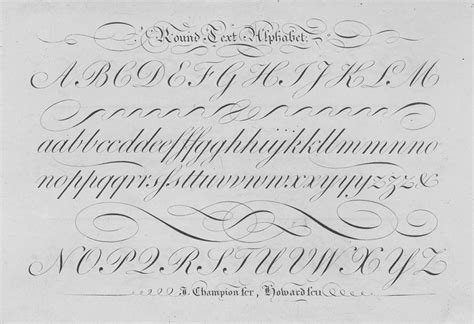 Round Text Alphabet.
A B C D E F G H I J K L M
aabbccddeefffgghhiijkkllmmnno
noppqqrrsfsttuvvwwxxyyyzzz&
N O P Q R S T U V W X Y Z
J. Champion scr, Howard scu